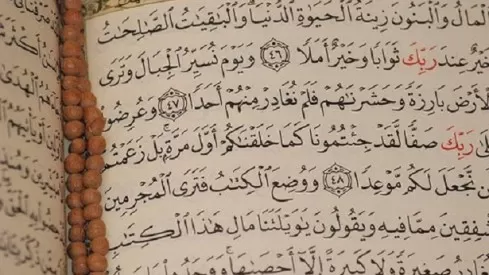 ٱلْمَالُ وَٱلْبَنُونَ زِينَةُ ٱلْحَيَوٰةِ ٱلدُّنْيَا وَٱلْبَٰقِيَٰتُ ٱلصَّٰلِحَٰتُ
خَيْرٌ عِندَ رَبِّكَ ثَوَابًا وَخَيْرٌ أَمَلًا ٤٦ وَيَوْمَ نُسَيِّرُ ٱلْجِبَالَ وَتَرَى
ٱلْأَرْضَ بَارِزَةً وَحَشَرْنَٰهُمْ فَلَمْ نُغَادِرْ مِنْهُمْ أَحَدًا ٤٧ وَعُرِضُوا۟
عَلَىٰ رَبِّكَ صَفًّا لَّقَدْ جِئْتُمُونَا كَمَا خَلَقْنَٰكُمْ أَوَّلَ مَرَّةٍۭ بَلْ زَعَمْتُمْ
نَّجْعَلَ لَكُم مَّوْعِدًا ٤٨ وَوُضِعَ ٱلْكِتَٰبُ فَتَرَى ٱلْمُجْرِمِينَ
مُشْفِقِينَ مِمَّا فِيهِ وَيَقُولُونَ يَٰوَيْلَتَنَا مَالِ هَٰذَا ٱلْكِتَٰبِ
صَغِيرَةً وَلَا كَبِيرَةً إِلَّآ أَحْصَىٰهَا وَوَجَدُوا۟